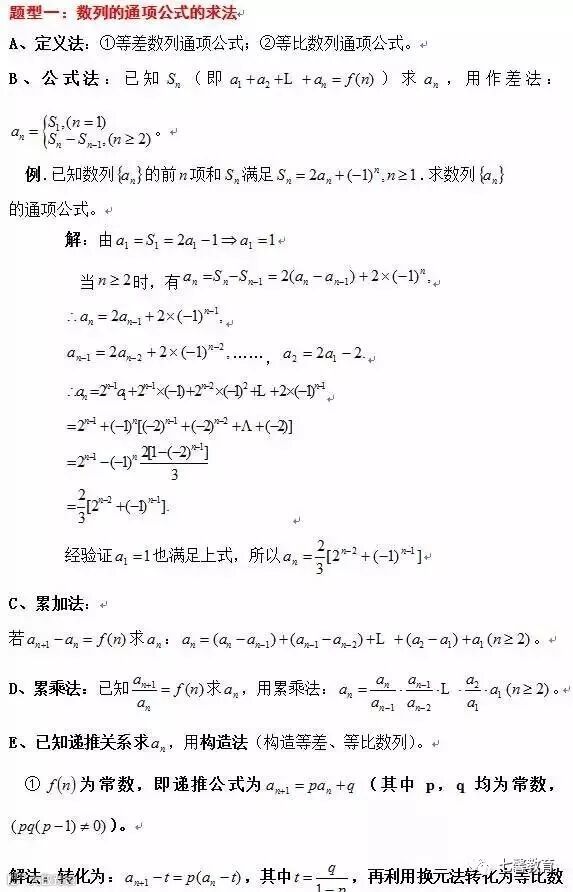 题型一：数列的通项公式的求法
A、定义法：①等差数列通项公式；②等比数列通项公式。
B、公式法：已知 Sₙ（即 a₁+a₂+L +aₙ=f(n)）求 aₙ，用作差法：
aₙ={S₁,(n=1) Sₙ−Sₙ₋₁,(n≥2)。
例.已知数列{aₙ}的前n项和Sₙ满足Sₙ=2aₙ+(−1)ⁿ,n≥1.求数列{aₙ}
的通项公式。
解：由a₁=S₁=2a₁−1⇒a₁=1
当n≥2时，有aₙ=Sₙ−Sₙ₋₁=2(aₙ−aₙ₋₁)+2×(−1)ⁿ,
∴aₙ=2aₙ₋₁+2×(−1)ⁿ⁻¹,
aₙ₋₁=2aₙ₋₂+2×(−1)ⁿ⁻²,……，a₂=2a₁−2.
∴aₙ=2ⁿ⁻¹a₁+2ⁿ⁻¹×(−1)+2ⁿ⁻²×(−1)²+L+2×(−1)ⁿ⁻¹
=2ⁿ⁻¹+(−1)ⁿ[(−2)ⁿ⁻¹+(−2)ⁿ⁻²+Λ+(−2)]
=2ⁿ⁻¹−(−1)ⁿ 2[1−(−2)ⁿ⁻¹]/3
=2/3[2ⁿ⁻²+(−1)ⁿ⁻¹].
经验证a₁=1也满足上式，所以aₙ=2/3[2ⁿ⁻²+(−1)ⁿ⁻¹]
C、累加法：
若aₙ₊₁−aₙ=f(n)求aₙ：aₙ=(aₙ−aₙ₋₁)+(aₙ₋₁−aₙ₋₂)+L +(a₂−a₁)+a₁(n≥2)。
D、累乘法：已知aₙ₊₁/aₙ=f(n)求aₙ，用累乘法：aₙ=aₙ/aₙ₋₁·aₙ₋₁/aₙ₋₂·L ·a₂/a₁·a₁(n≥2)。
E、已知递推关系求aₙ，用构造法（构造等差、等比数列）。
① f(n)为常数，即递推公式为aₙ₊₁=paₙ+q（其中 p，q 均为常数，
(pq(p−1)≠0)）。
七馨教育
解法：转化为：aₙ₊₁−t=p(aₙ−t)，其中t=q/1−p，再利用换元法转化为等比数